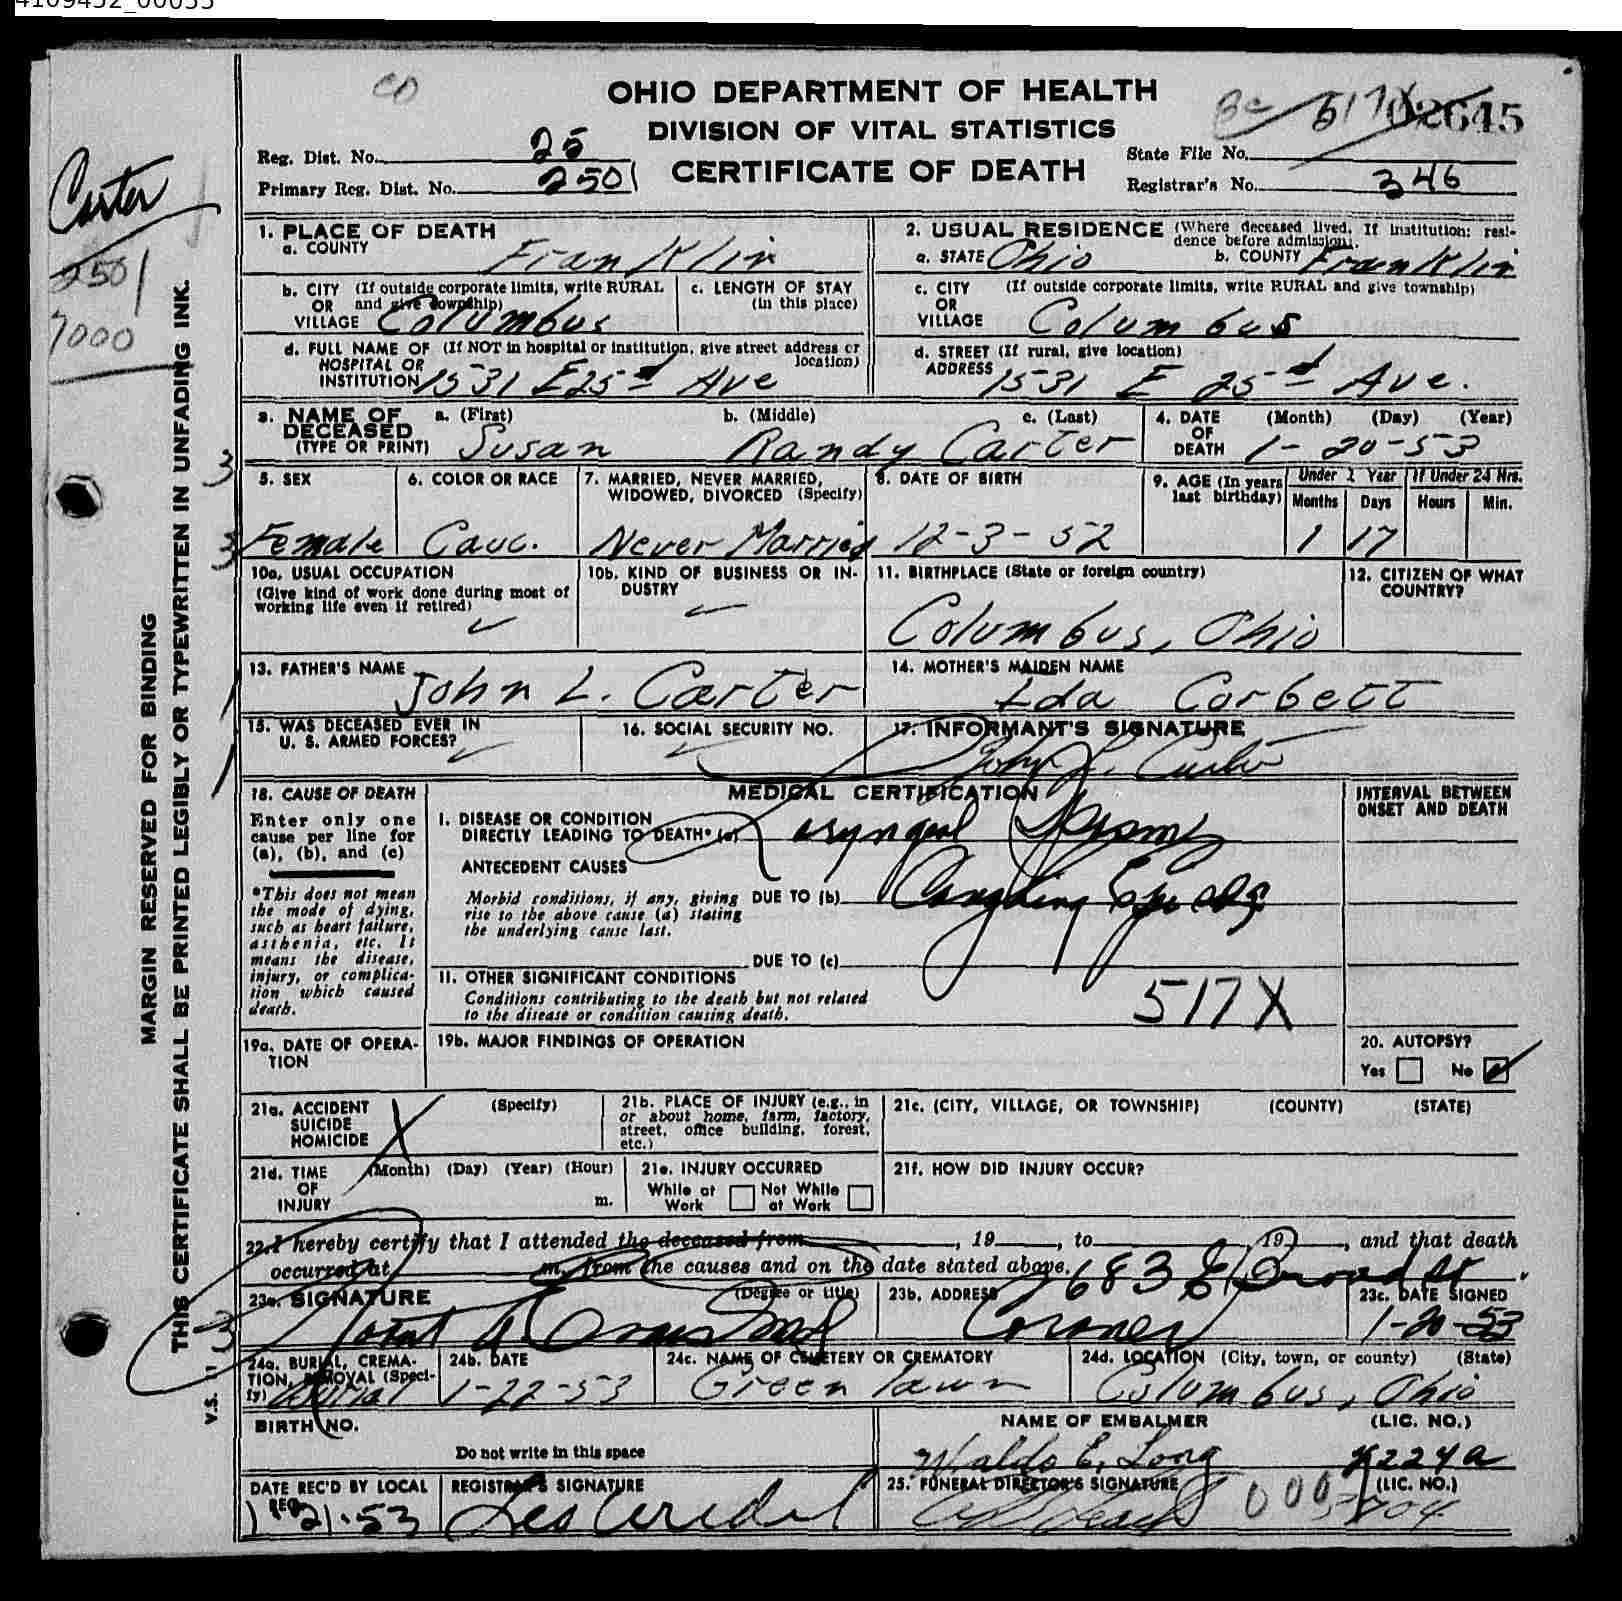 4109452_00055
CO
OHIO DEPARTMENT OF HEALTH
DIVISION OF VITAL STATISTICS
CERTIFICATE OF DEATH
02645
Reg. Dist. No. 25
Primary Reg. Dist. No. 2501
State File No.
Registrar's No. 346
Carter
2501
7000
MARGIN RESERVED FOR BINDING
THIS CERTIFICATE SHALL BE PRINTED LEGIBLY OR TYPEWRITTEN IN UNFADING INK.
V.S. 1
1. PLACE OF DEATH
a. COUNTY Franklin
2. USUAL RESIDENCE (Where deceased lived. If institution: resi-
dence before admission).
a. STATE Ohio b. COUNTY Franklin
b. CITY (If outside corporate limits, write RURAL
OR and give township)
VILLAGE Columbus
c. LENGTH OF STAY
(in this place)
c. CITY (If outside corporate limits, write RURAL and give township)
OR
VILLAGE Columbus
d. FULL NAME OF (If NOT in hospital or institution, give street address or
HOSPITAL OR location)
INSTITUTION 1531 E 25th Ave
d. STREET (If rural, give location)
ADDRESS 1531 E 25th Ave.
3. NAME OF DECEASED (TYPE OR PRINT)
a. (First) Susan
b. (Middle) Randy
c. (Last) Carter
4. DATE OF DEATH (Month) (Day) (Year)
1-20-53
5. SEX
Female
6. COLOR OR RACE
Cauc.
7. MARRIED, NEVER MARRIED,
WIDOWED, DIVORCED (Specify)
Never Married
8. DATE OF BIRTH
12-3-52
9. AGE (In years
last birthday)
Under 1 Year
Months 1
Days 17
If Under 24 Hrs.
Hours Min.
10a. USUAL OCCUPATION
(Give kind of work done during most of
working life even if retired)
10b. KIND OF BUSINESS OR IN-
DUSTRY
11. BIRTHPLACE (State or foreign country)
Columbus, Ohio
12. CITIZEN OF WHAT
COUNTRY?
13. FATHER'S NAME
John L. Carter
14. MOTHER'S MAIDEN NAME
Ida Corbett
15. WAS DECEASED EVER IN
U. S. ARMED FORCES?
16. SOCIAL SECURITY NO.
17. INFORMANT'S SIGNATURE
John L. Carter
18. CAUSE OF DEATH
Enter only one
cause per line for
(a), (b), and (c)
*This does not mean
the mode of dying,
such as heart failure,
asthenia, etc. It
means the disease,
injury, or complica-
tion which caused
death.
MEDICAL CERTIFICATION
INTERVAL BETWEEN
ONSET AND DEATH
I. DISEASE OR CONDITION
DIRECTLY LEADING TO DEATH* (a) Laryngeal Spasms
ANTECEDENT CAUSES
Morbid conditions, if any, giving
rise to the above cause (a) stating
the underlying cause last.
DUE TO (b) Coughing Spells
DUE TO (c)
II. OTHER SIGNIFICANT CONDITIONS
Conditions contributing to the death but not related
to the disease or condition causing death.
517X
19a. DATE OF OPERA-
TION
19b. MAJOR FINDINGS OF OPERATION
20. AUTOPSY?
Yes No
21a. ACCIDENT (Specify)
SUICIDE
HOMICIDE
21b. PLACE OF INJURY (e.g., in
or about home, farm, factory,
street, office building, forest,
etc.)
21c. (CITY, VILLAGE, OR TOWNSHIP) (COUNTY) (STATE)
21d. TIME (Month) (Day) (Year) (Hour)
OF
INJURY m.
21e. INJURY OCCURRED
While at Work Not While at Work
21f. HOW DID INJURY OCCUR?
22. I hereby certify that I attended the deceased from , 19 , to , 19 , and that death
occurred at m. from the causes and on the date stated above.
683 E Broad St.
23a. SIGNATURE (Degree or title)
23b. ADDRESS
Coroner
23c. DATE SIGNED
1-20-53
24a. BURIAL, CREMA-
TION, REMOVAL (Speci-
fy) Burial
24b. DATE
1-22-53
24c. NAME OF CEMETERY OR CREMATORY
Green Lawn
24d. LOCATION (City, town, or county) (State)
Columbus, Ohio
BIRTH NO.
Do not write in this space
NAME OF EMBALMER (LIC. NO.)
Waldo E. Long 4224A
DATE REC'D BY LOCAL
REG.
1-21-53
REGISTRAR'S SIGNATURE
25. FUNERAL DIRECTOR'S SIGNATURE (LIC. NO.)